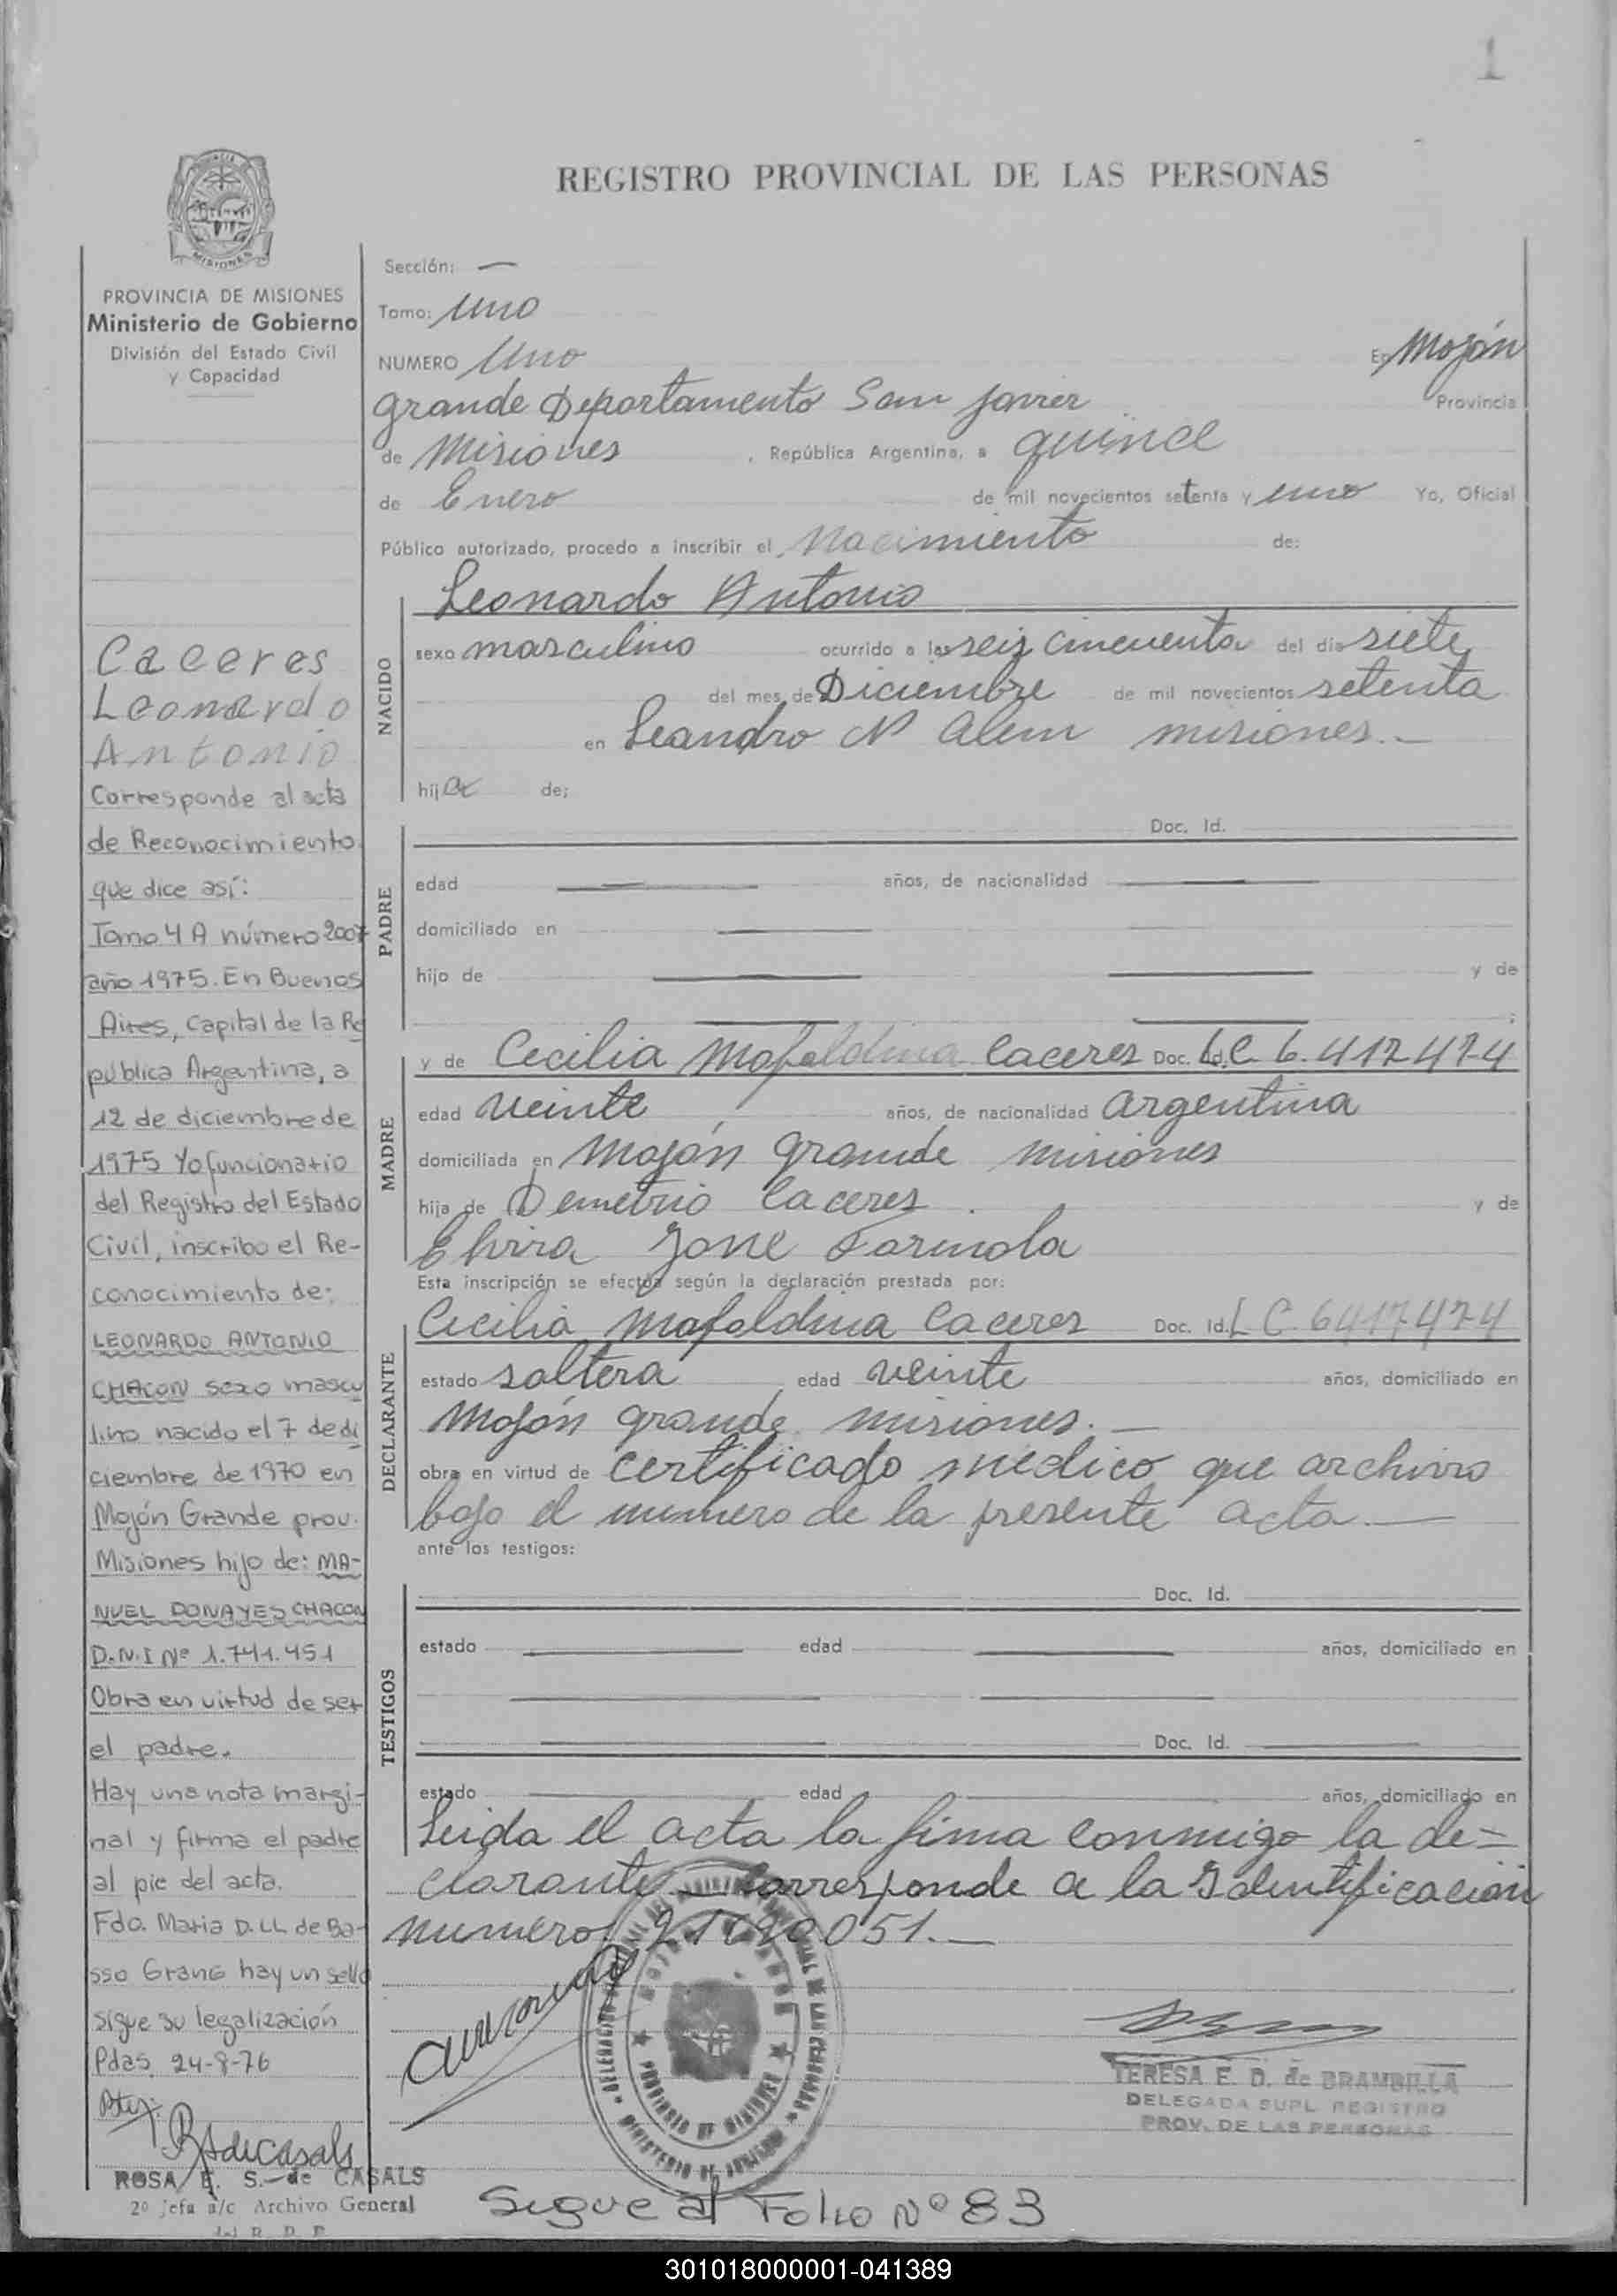 1
REGISTRO PROVINCIAL DE LAS PERSONAS
MISIONES
PROVINCIA DE MISIONES
Ministerio de Gobierno
División del Estado Civil
y Capacidad
Caceres
Leonardo
Antonio
Corresponde al acta
de Reconocimiento
que dice así:
Tomo 4 A número 2007
año 1975. En Buenos
Aires, Capital de la Re
pública Argentina, a
12 de diciembre de
1975 Yo funcionario
del Registro del Estado
Civil, inscribo el Re-
conocimiento de:
LEONARDO ANTONIO
CHACON sexo mascu
lino nacido el 7 de di
ciembre de 1970 en
Mojón Grande prov.
Misiones hijo de: MA-
NUEL DONAYES CHACON
D.N.I Nº 1.741.451
Obra en virtud de ser
el padre.
Hay una nota margi-
nal y firma el padre
al pie del acta.
Fdo. Maria D. LL de Ba-
sso Grang hay un sello
sigue su legalización
Pdas, 24-8-76
ROSA E. S. de CASALS
2º Jefa a/c Archivo General
del R. P. P.
Sección: —
Tomo: Uno
NUMERO Uno En Mojón
grande Departamento San Javier Provincia
de Misiones , República Argentina, a quince
de Enero de mil novecientos setenta y uno Yo, Oficial
Público autorizado, procedo a inscribir el Nacimiento de:
NACIDO
Leonardo Antonio
sexo masculino ocurrido a las seis cincuenta del día siete
del mes de Diciembre de mil novecientos setenta
en Leandro N Alem misiones.—
hijo de:
PADRE
Doc. Id.
edad años, de nacionalidad
domiciliado en
hijo de y de
MADRE
y de Cecilia Mafaldina Caceres Doc. Id. L.C. 6.417474
edad veinte años, de nacionalidad argentina
domiciliada en Mojón grande misiones
hija de Demetrio Caceres y de
Elvira Jone
Esta inscripción se efectúa según la declaración prestada por:
DECLARANTE
Cecilia Mafaldina Caceres Doc. Id. L C 6417474
estado soltera edad veinte años, domiciliado en
Mojón grande misiones.—
obra en virtud de certificado médico que archivo
bajo el numero de la presente acta.—
ante los testigos:
TESTIGOS
Doc. Id.
estado edad años, domiciliado en
Doc. Id.
estado edad años, domiciliado en
Leida el acta la firma conmigo la de=
clarante — Corresponde a la Identificación
numero
TERESA E. D. de BRAMBILLA
DELEGADA SUPL. REGISTRO
PROV. DE LAS PERSONAS
Sigue al Folio Nº 83
301018000001-041389